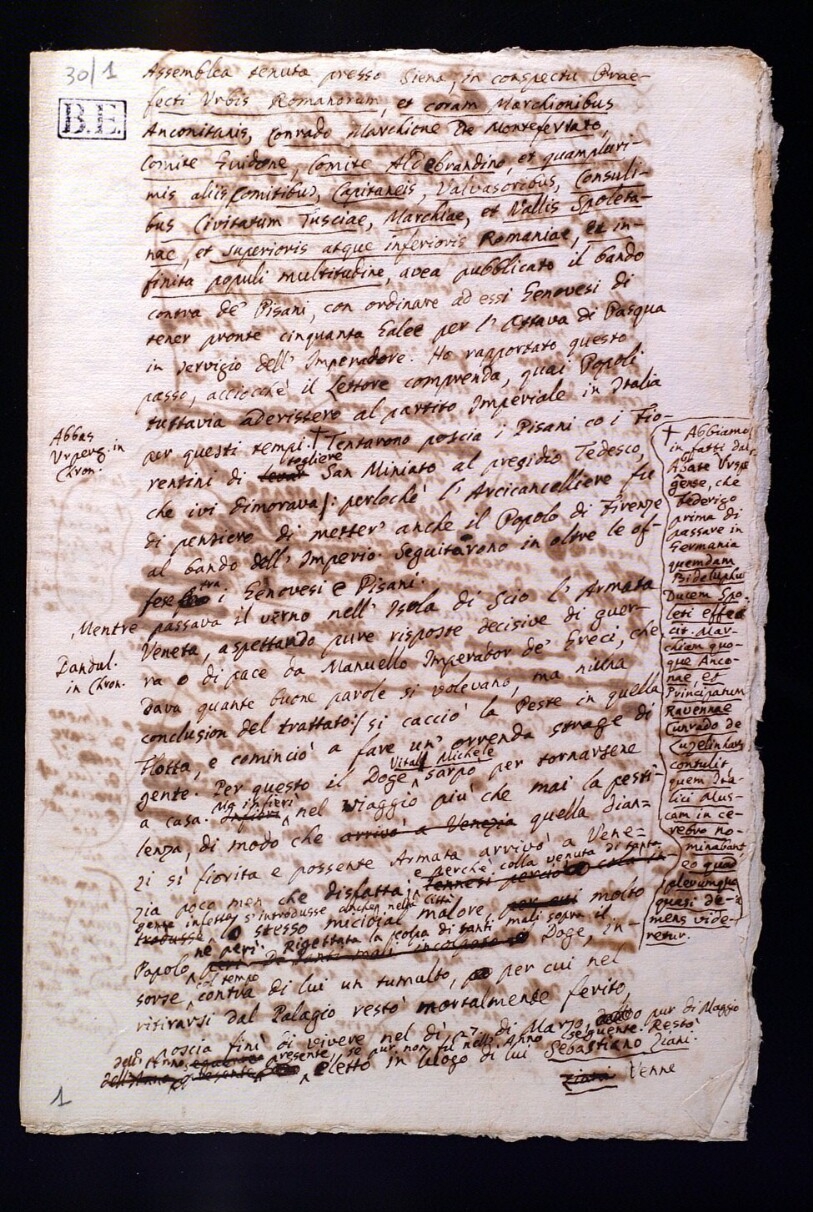 30/1
B.E.
Assemblea tenuta presso Siena, in conspectu Prae-
fecti Urbis Romanorum, et coram Marchionibus
Anconitanis, Conrado Marchione De Monteferrato,
Comite Guidone, Comite Aldebrandino, et quampluri-
mis aliis Comitibus, Capitaneis, Valvasoribus, Consuli-
bus Civitatum Tusciae, Marchiae, et Vallis Spoleta-
nae, et superioris atque inferioris Romaniae, et in-
finita populi multitudine, avea pubblicato il bando
contra de' Pisani, con ordinare ad essi Genovesi di
tener pronte cinquanta Galee per l'Ottava di Pasqua
in servigio dell'Imperadore. Ho rapportato questo
passo, acciocchè il Lettore comprenda, quai Popoli
tuttavia aderissero al partito Imperiale in Italia
per questi tempi. † Tentarono poscia i Pisani co i Fio-
rentini di levar togliere San Miniato al presidio Tedesco,
che ivi dimorava; perlochè l'Arcicancelliere fu
di pensiero di metter anche il Popolo di Firenze
al bando dell'Imperio. Seguitarono in oltre le of-
fese tra i Genovesi e Pisani.
Mentre passava il verno nell'Isola di Scio l'Armata
Veneta, aspettando pure risposte decisive di guer-
ra o di pace da Manuello Imperador de' Greci, che
dava quante buone parole si volevano, ma niuna
conclusion del trattato; si cacciò la Peste in quella
Flotta, e cominciò a fare un' orrenda strage di
gente. Per questo il Doge Vitale Michele sarpò per tornarsene
a casa. Ma infierì nel viaggio più che mai la pesti-
lenza, di modo che arrivò a Venezia quella dian-
zi sì fiorita e possente Armata arrivò a Vene-
zia poco men che disfatta; e perchè colla venuta di tanta
gente infetta s'introdusse anche nella Città
lo stesso micidial malore, molto
Popolo ne perì. Rigettata la colpa di tanti mali sopra il Doge, in-
sorse un tempo contra di lui un tumulto, per cui nel
ritirarsi dal Palagio restò mortalmente ferito,
e poscia finì di vivere nel dì 27. di Marzo, o pur di Maggio
dell'Anno presente, se pur non fu nell'Anno seguente. Restò
eletto in luogo di lui Sebastiano Ziani.
Ziani Venne
Abbas
Ursperg. in
Chron.
Dandul.
in Chron.
† Abbiamo
in fatti dall'
Abate Ursper-
gense, che
Federigo
prima di
passare in
Germania
quemdam
Bidelulphum
Ducem Spo-
leti effe-
cit. Mar-
chiam quo-
que Anco-
nae, et
Principatum
Ravennae
Cunrado de
Luzelinhart
contulit,
quem Ita-
lici Mus-
cam in ce-
rebro no-
minabant,
eo quod
plerumque
quasi de-
mens vide-
retur.
1